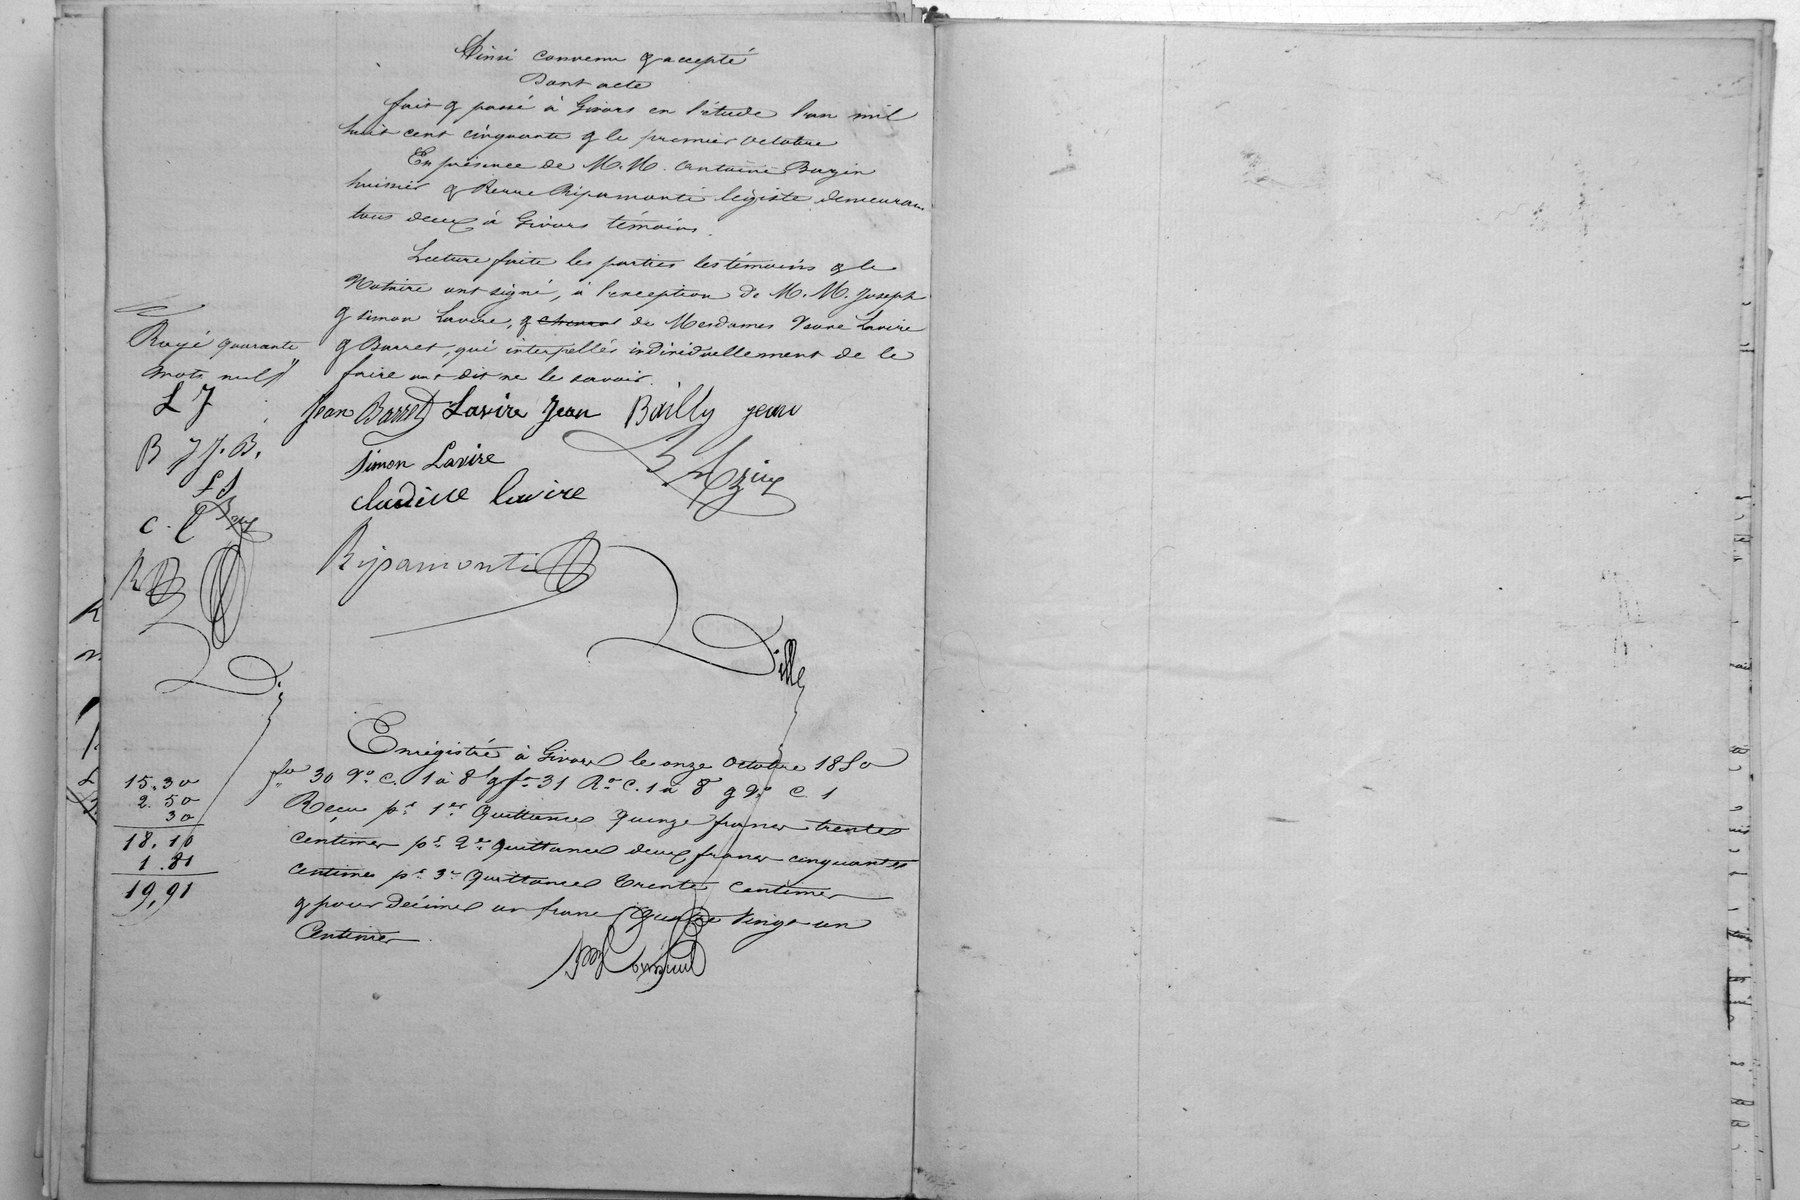 Ainsi convenu & accepté
Dont acte
fait & passé à Givors en l'étude l'an mil
huit cent cinquante & le premier octobre
En présence de M.M. Antoine Bazin
huissier & Pierre Ripamonti légiste demeurant
tous deux à Givors témoins.
Lecture faite les parties les témoins & le
Notaire ont signé, à l'exception de M.M. Joseph
& Simon Lavire, & de Mesdames Veuve Lavire
& Barret, qui interpellés individuellement de le
faire ont dit ne le savoir.
Rayé quarante
mots nuls
L J
B J J. B.
L S
C. L
Jean Barret Lavire Jean Bailly jean
Simon Lavire
claudine lavire
Bazin
Ripamonti
Dille
Enregistré à Givors le onze Octobre 1850
fo 30 Vo. C. 1 à 8 & fo 31 Ro C. 1 à 8 & Vo C. 1
Reçu pr. 1er Quittance quinze francs trente
centimes pr. 2e quittance deux francs cinquante
centimes pr. 3e Quittance trente centimes
& pour décime un franc quatre vingt un
Centimes
15.30
2.50
30
18.10
1.81
19.91